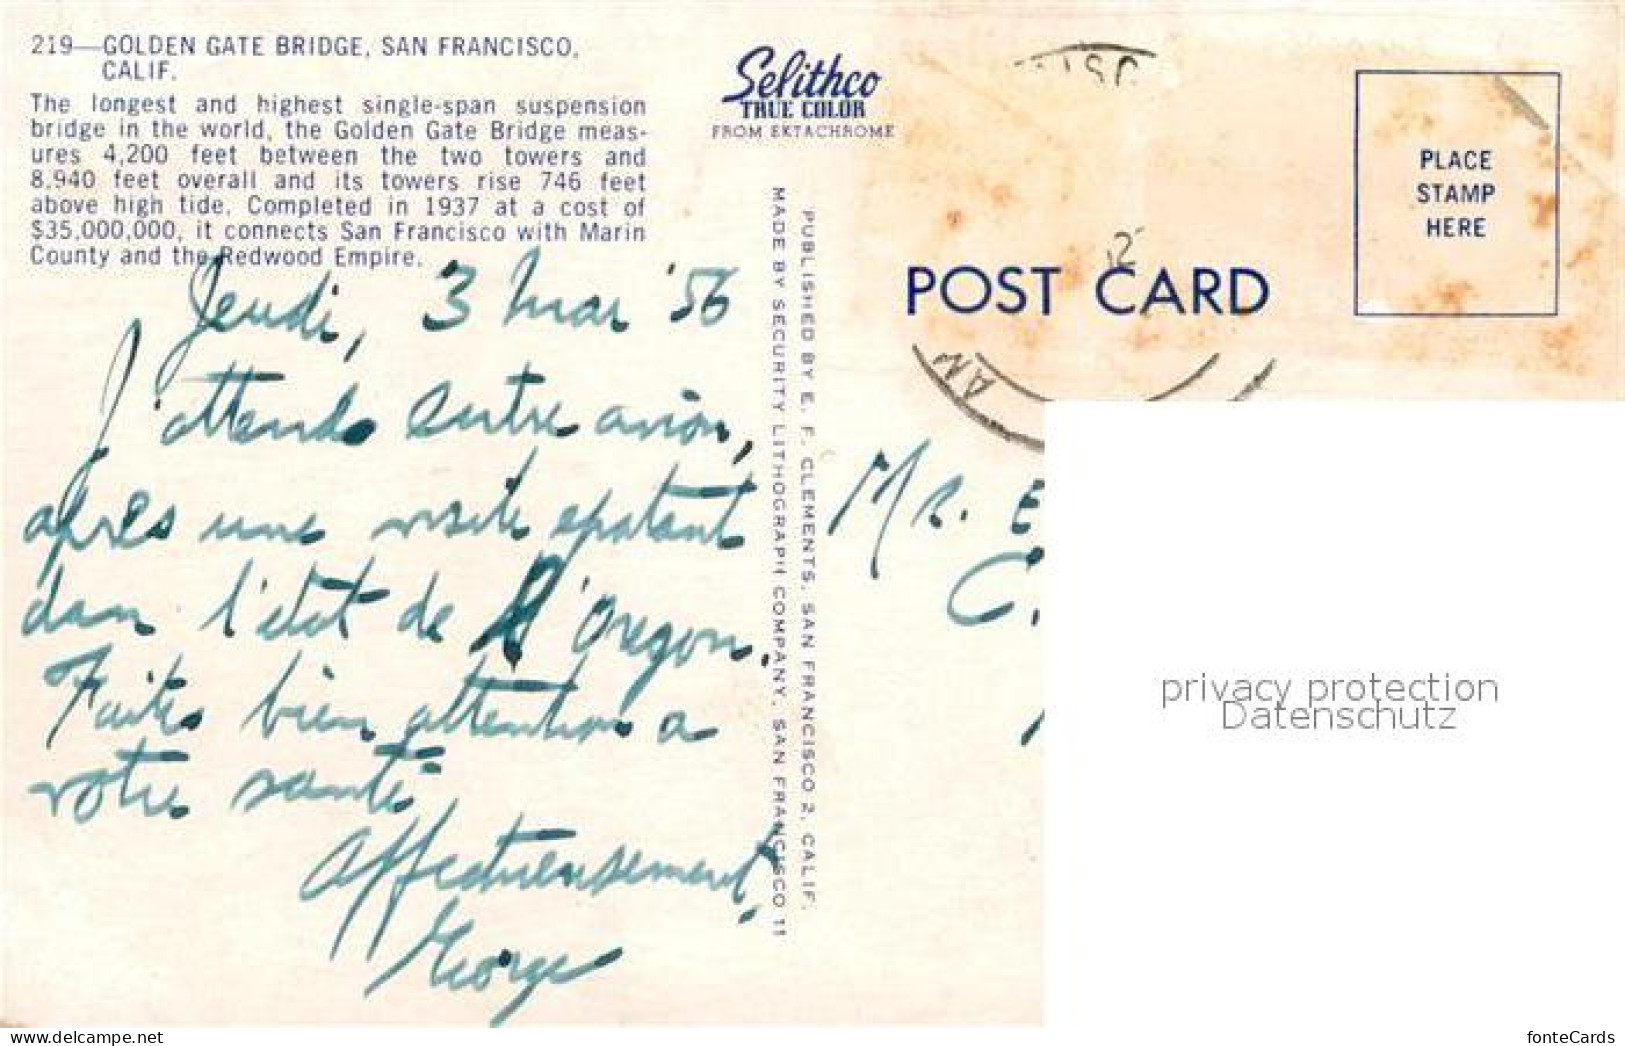 219—GOLDEN GATE BRIDGE, SAN FRANCISCO,
CALIF.
The longest and highest single-span suspension
bridge in the world, the Golden Gate Bridge meas-
ures 4,200 feet between the two towers and
8,940 feet overall and its towers rise 746 feet
above high tide. Completed in 1937 at a cost of
$35,000,000, it connects San Francisco with Marin
County and the Redwood Empire.
Jeudi, 3 mai '56
J'attends autre avion,
après une visite epatant
dans l'état de l'Oregon.
Faites bien attention a
votre santé,
Affectueusement,
George
Selithco
TRUE COLOR
FROM EKTACHROME
PUBLISHED BY E. F. CLEMENTS, SAN FRANCISCO 2, CALIF.
MADE BY SECURITY LITHOGRAPH COMPANY, SAN FRANCISCO 11
PLACE
STAMP
HERE
POST CARD
AM
Mr. E
C.
privacy protection
Datenschutz
fonteCards